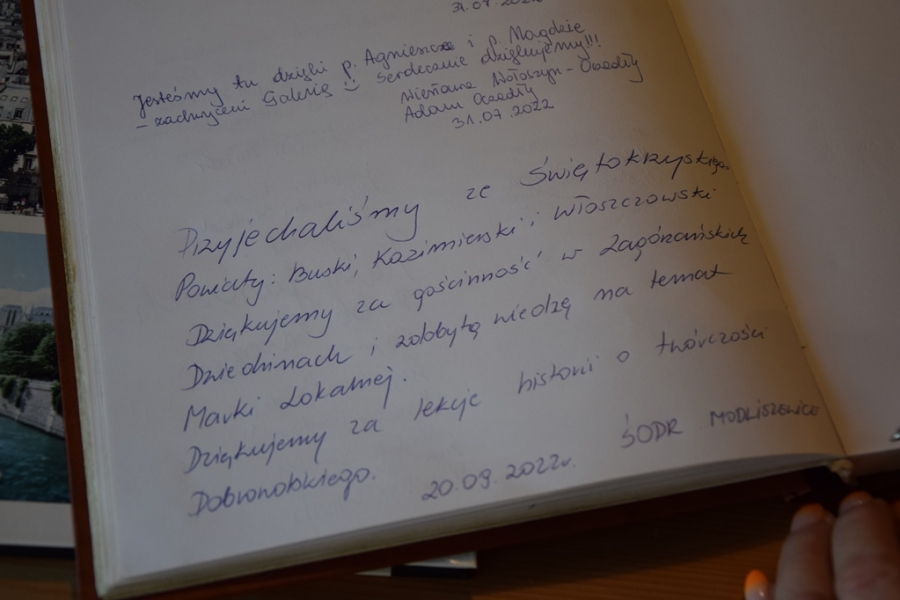 31.07.2022
Jesteśmy tu dzięki p. Agnieszce i p. Magdzie
- zachwyceni Galerią :) Serdecznie dziękujemy!!!
Adam
31.07.2022
Przyjechaliśmy ze Świętokrzyskiego.
Powiaty: Buski, Kazimierski i Włoszczowski
Dziękujemy za gościnność w Zagórzańskich
Dziedzinach i zdobytą wiedzę na temat
Marki Lokalnej.
Dziękujemy za lekcje historii o twórczości
Dobrowolskiego.
20.09.2022r. ŚODR MODLISZEWICE